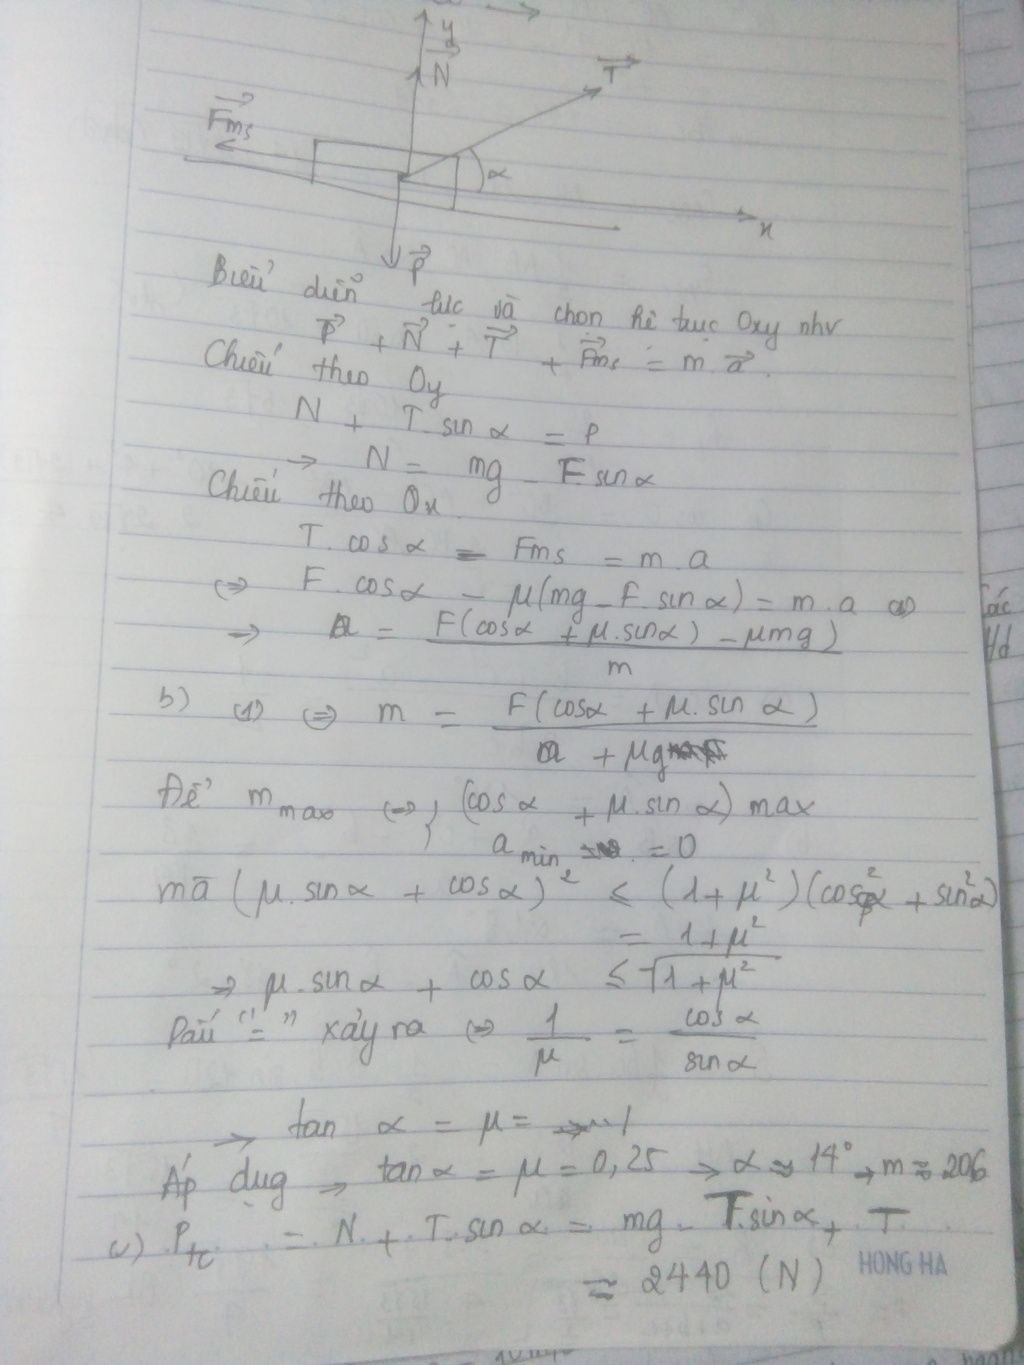 y
N
T
Fms
α
x
P
Biểu diễn lực và chọn hệ trục Oxy như
P + N + T + Fms = m.a.
Chiếu theo Oy
N + T.sin α = P
→ N = mg - F sinα
Chiếu theo Ox
T.cos α - Fms = m.a
⇔ F.cosα - μ(mg - F sinα) = m.a (1)
→ a = F(cosα + μ.sinα) - μmg) / m
b) (1) ⇔ m = F(cosα + μ.sin α) / a + μg
Để m max ⇔ (cos α + μ.sin α) max
a min = 0
mà (μ.sinα + cosα)² ≤ (1+μ²)(cos²α + sin²α)
= 1+μ²
⇒ μ.sinα + cosα ≤ √1+μ²
Dấu "=" xảy ra ⇔ 1/μ = cosα/sinα
→ tan α = μ =
Áp dụg → tanα = μ = 0,25 → α ≈ 14° → m ≈ 206
c) Ptc = N + T.sinα = mg - T.sinα + T
≈ 2440 (N)
HONG HA